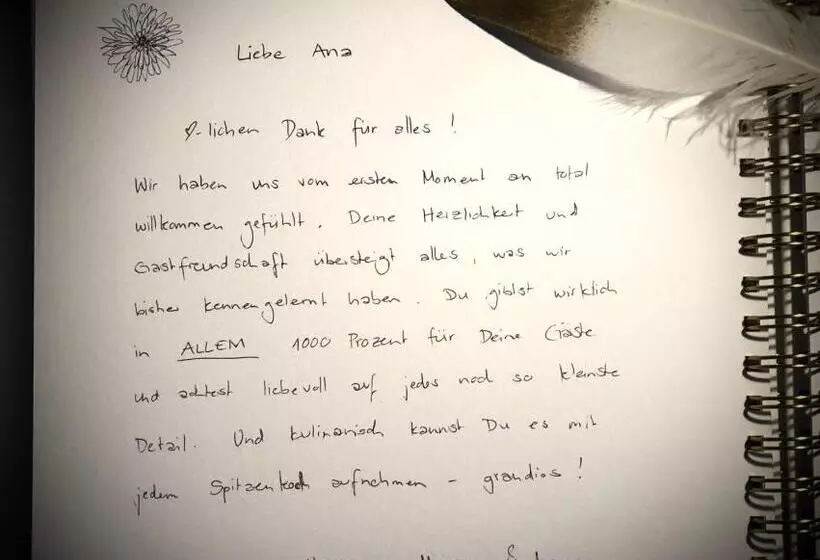 Liebe Ana
♡-lichen Dank für alles !
Wir haben uns vom ersten Moment an total
willkommen gefühlt. Deine Herzlichkeit und
Gastfreundschaft übersteigt alles, was wir
bisher kennengelernt haben. Du gibst wirklich
in ALLEM 1000 Prozent für Deine Gäste
und achtest liebevoll auf jedes noch so kleinste
Detail. Und kulinarisch kannst Du es mit
jedem Spitzenkoch aufnehmen - grandios !